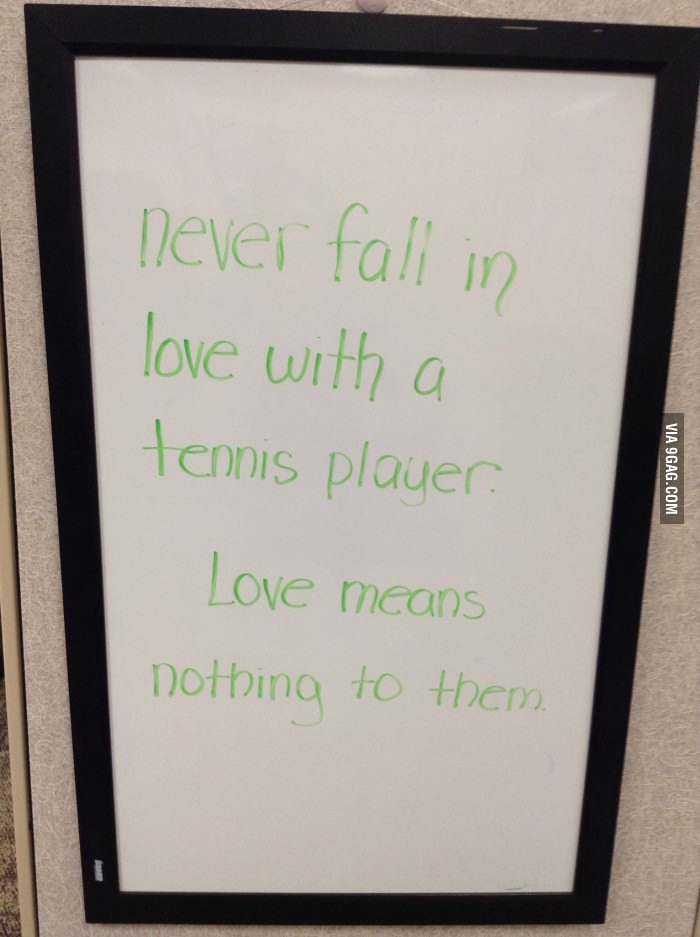 never fall in
love with a
tennis player.
Love means
nothing to them.
VIA 9GAG.COM